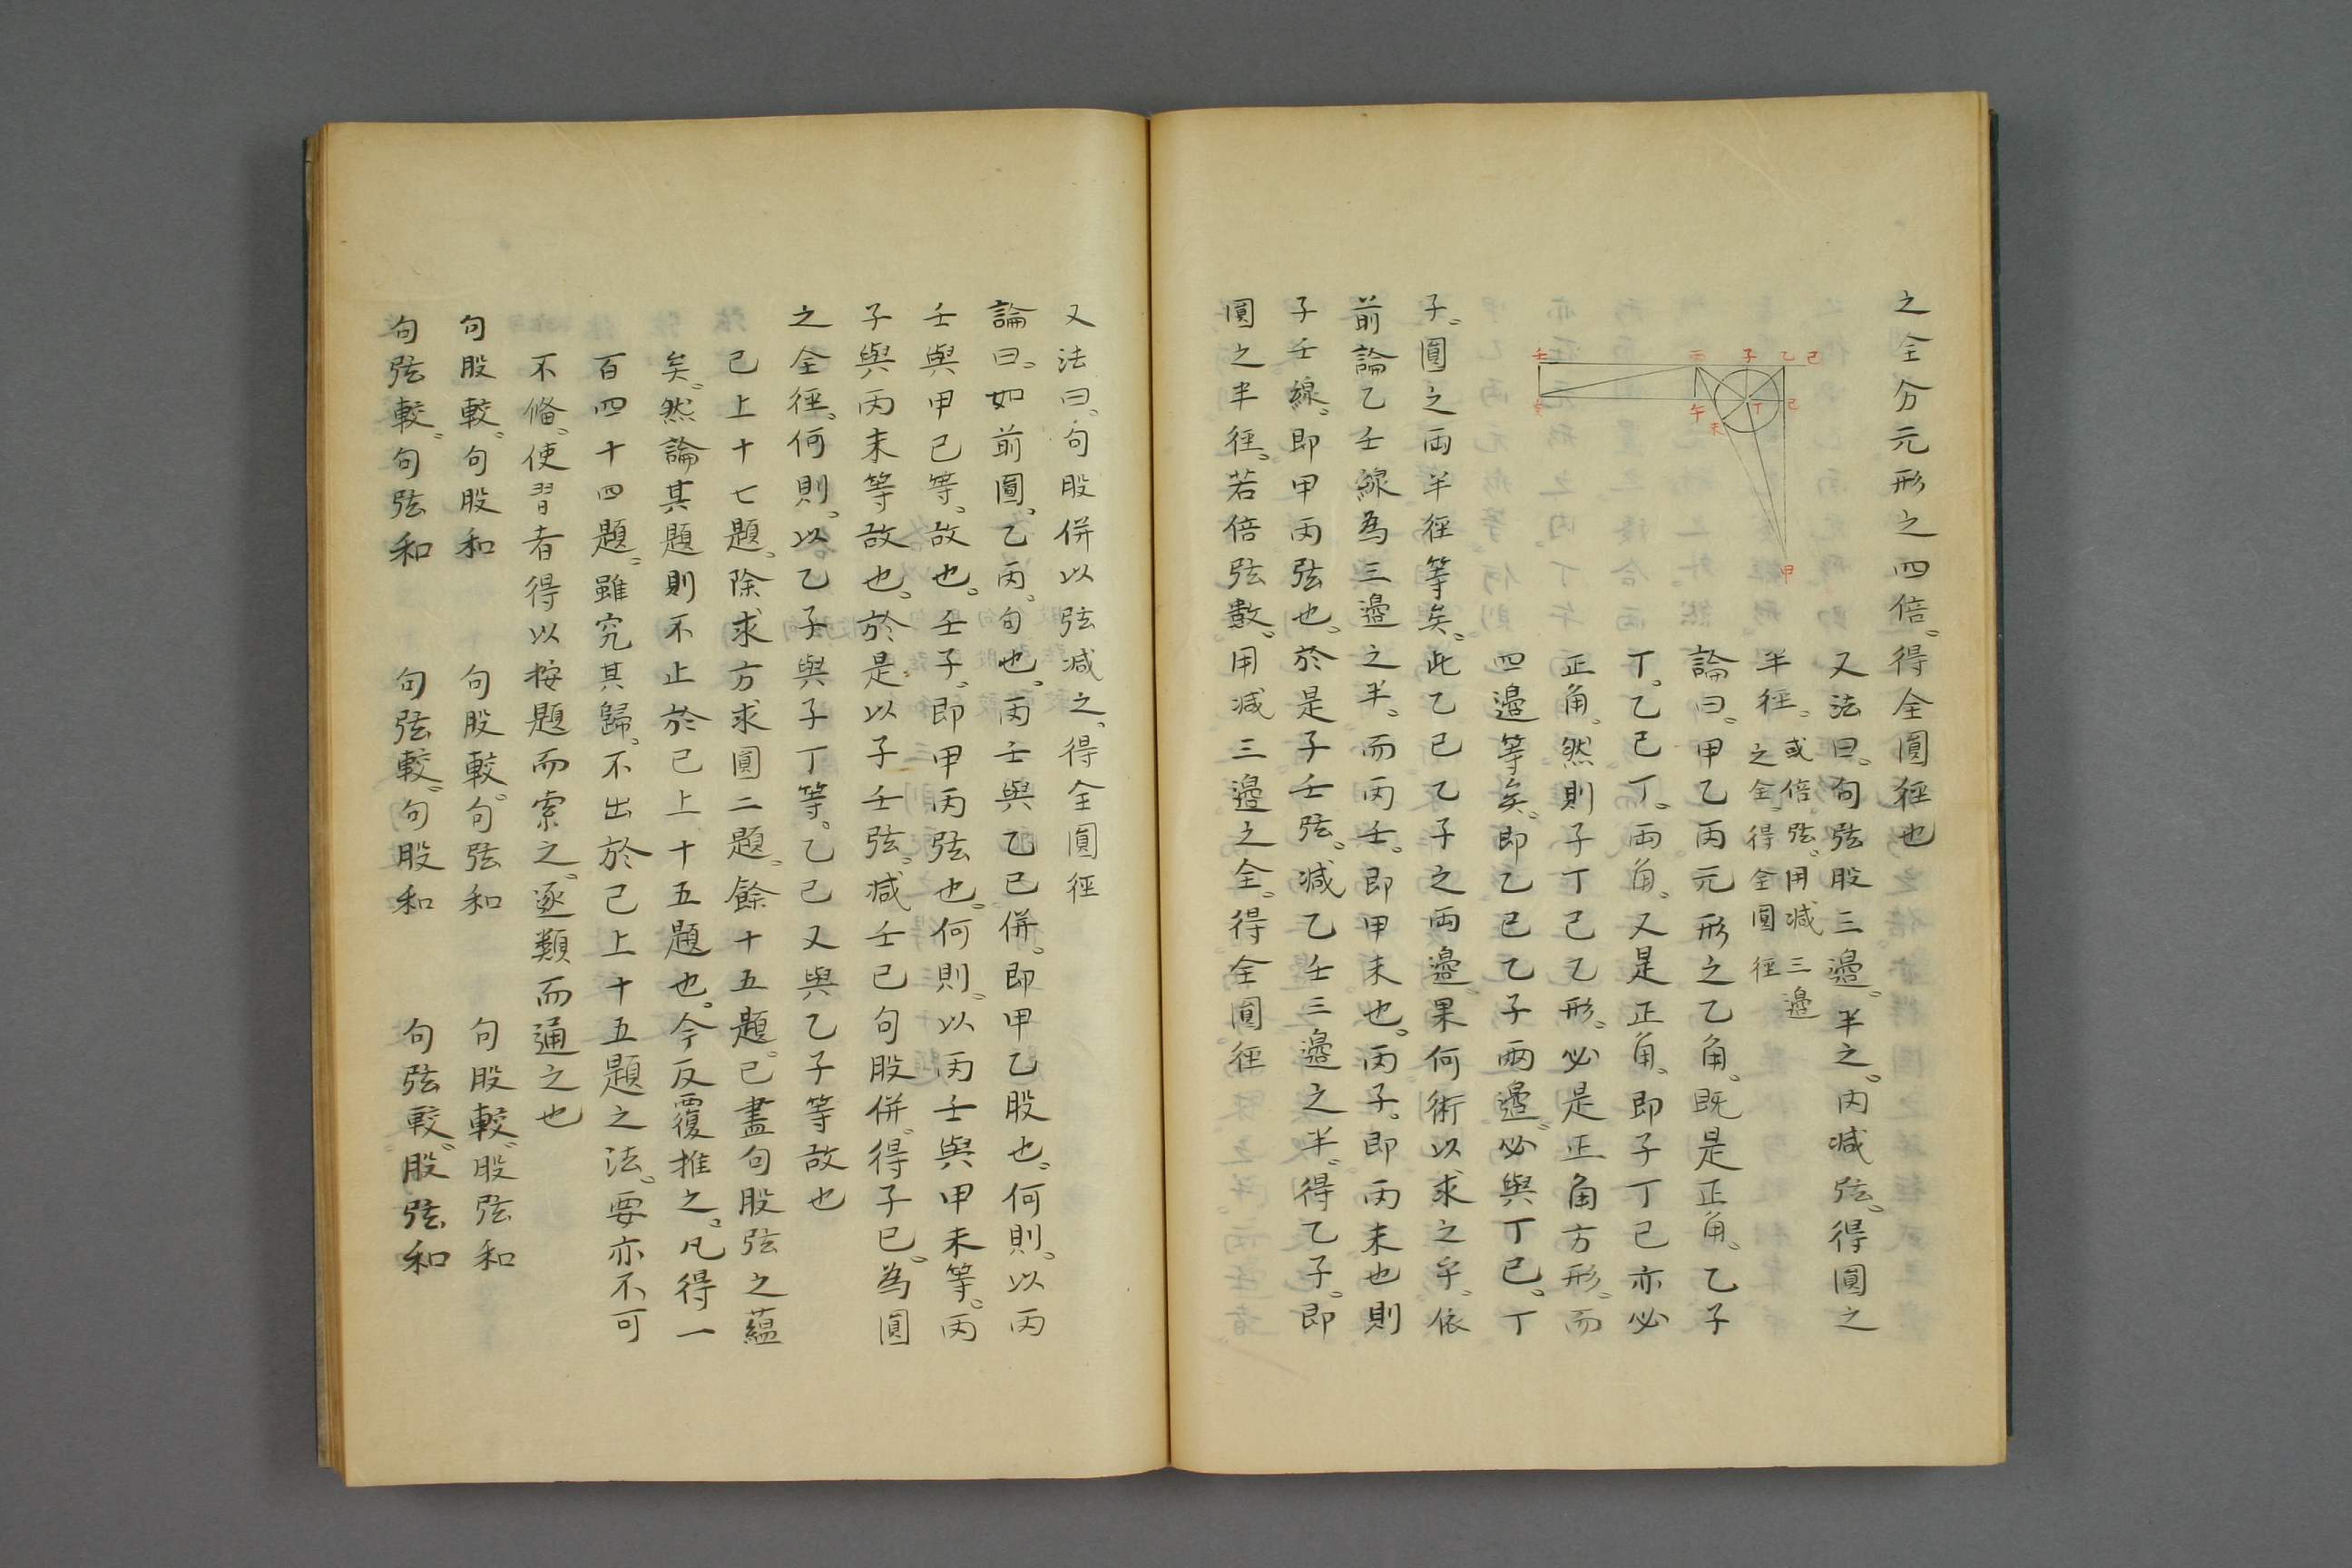 之全分元形之四倍得全圓徑也
壬 丙 子 乙 己
午 丁 己
未
甲
又法曰句弦股三邊半之內減弦得圓之
半徑或倍弦用減三邊
之全得全圓徑
論曰甲乙丙元形之乙角既是正角乙子
丁乙己丁兩角又是正角即子丁己亦必
正角然則子丁己乙形必是正角方形而
四邊等矣即乙己乙子兩邊必與丁己丁
子圓之兩半徑等矣此乙己乙子之兩邊果何術以求之乎依
前論乙壬線為三邊之半而丙壬即甲未也丙子即丙未也則
子壬線即甲丙弦也於是子壬弦減乙壬三邊之半得乙子即
圓之半徑若倍弦數用減三邊之全得全圓徑
又法曰句股併以弦減之得全圓徑
論曰如前圖乙丙句也丙壬與乙己併即甲乙股也何則以丙
壬與甲己等故也壬子即甲丙弦也何則以丙壬與甲未等丙
子與丙末等故也於是以子壬弦減壬己句股併得子己為圓
之全徑何則以乙子與子丁等乙己又與乙子等故也
已上十七題除求方求圓二題餘十五題已盡句股弦之蘊
矣然論其題則不止於已上十五題也今反覆推之凡得一
百四十四題雖究其歸不出於已上十五題之法要亦不可
不俻使習者得以按題而索之逐類而通之也
句股較句股和 句股較句弦和 句股較股弦和
句弦較句弦和 句弦較句股和 句弦較股弦和